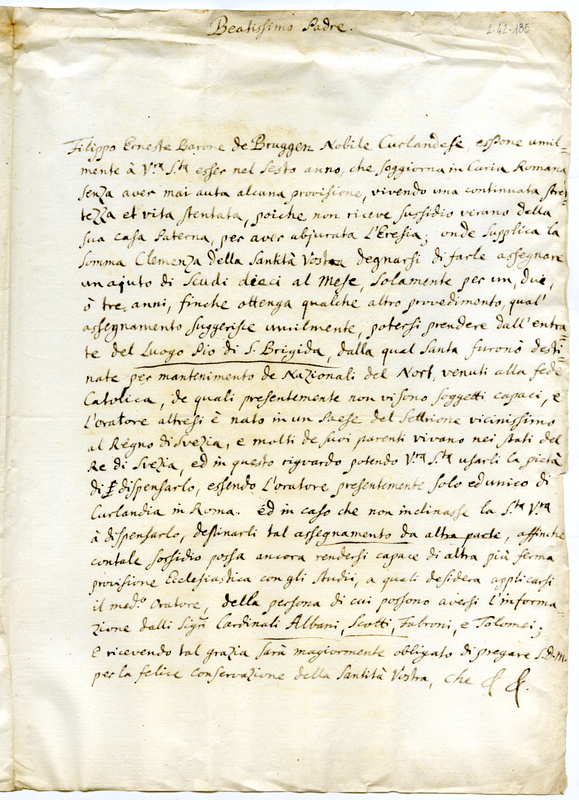 Beatissimo Padre.
2-42-185
Filippo Erneste Barone de Bruggen Nobile Curlandese, espone umil-
mente à V.ra S.tà esser nel sesto anno, che soggiorna in Curia Romana
senza aver mai auta alcuna provisione, vivendo una continuata stret-
tezza et vita stentata, poiche non riceve sussidio verano della
sua casa Paterna, per aver abjurata L'Eresia; onde supplica la
somma Clemenza della Santità Vostra degnarsi di farle assegnare
un ajuto di Scudi dieci al Mese, solamente per un, due,
ò tre, anni, finche ottenga qualche altro provedimento, qual'
assegnamento suggerisce umilmente, potersi prendere dall'entra-
te del Luogo Pio di S. Brigida, dalla qual Santa furonò desti-
nate per mantenimento de Nazionali del Nort, venuti alla fede
Catolica, de quali presentemente non vi sono soggetti capaci, e
L'oratore altresi è nato in un Paese del Settrione vicinissimo
al Regno di Svezia, e molti de suoi parenti vivano nei stati del
Re di Svezia, ed in questo riguardo potendo V.ra S.tà usarli la pietà
di dispensarlo, essendo L'oratore presentemente solo ed unico di
Curlandia in Roma. Ed in caso che non inclinasse la S.tà V.ra
à dispensarlo, destinarli tal assegnamento da altra parte, affinche
con tale sossidio possa ancora rendersi capace di altra più ferma
provisione Ecclesiastica con gli studii, a quali desidera applicarsi
il med.o Oratore, della persona di cui possono aversi l'informa-
zione dalli Sig.ri Cardinali Albani, Scotti, Fabroni, e Tolomei;
E ricevendo tal grazia sarà magiormente obligato di pregare S.D.M.
per la felice conservazione della Santità Vostra, che &. &.